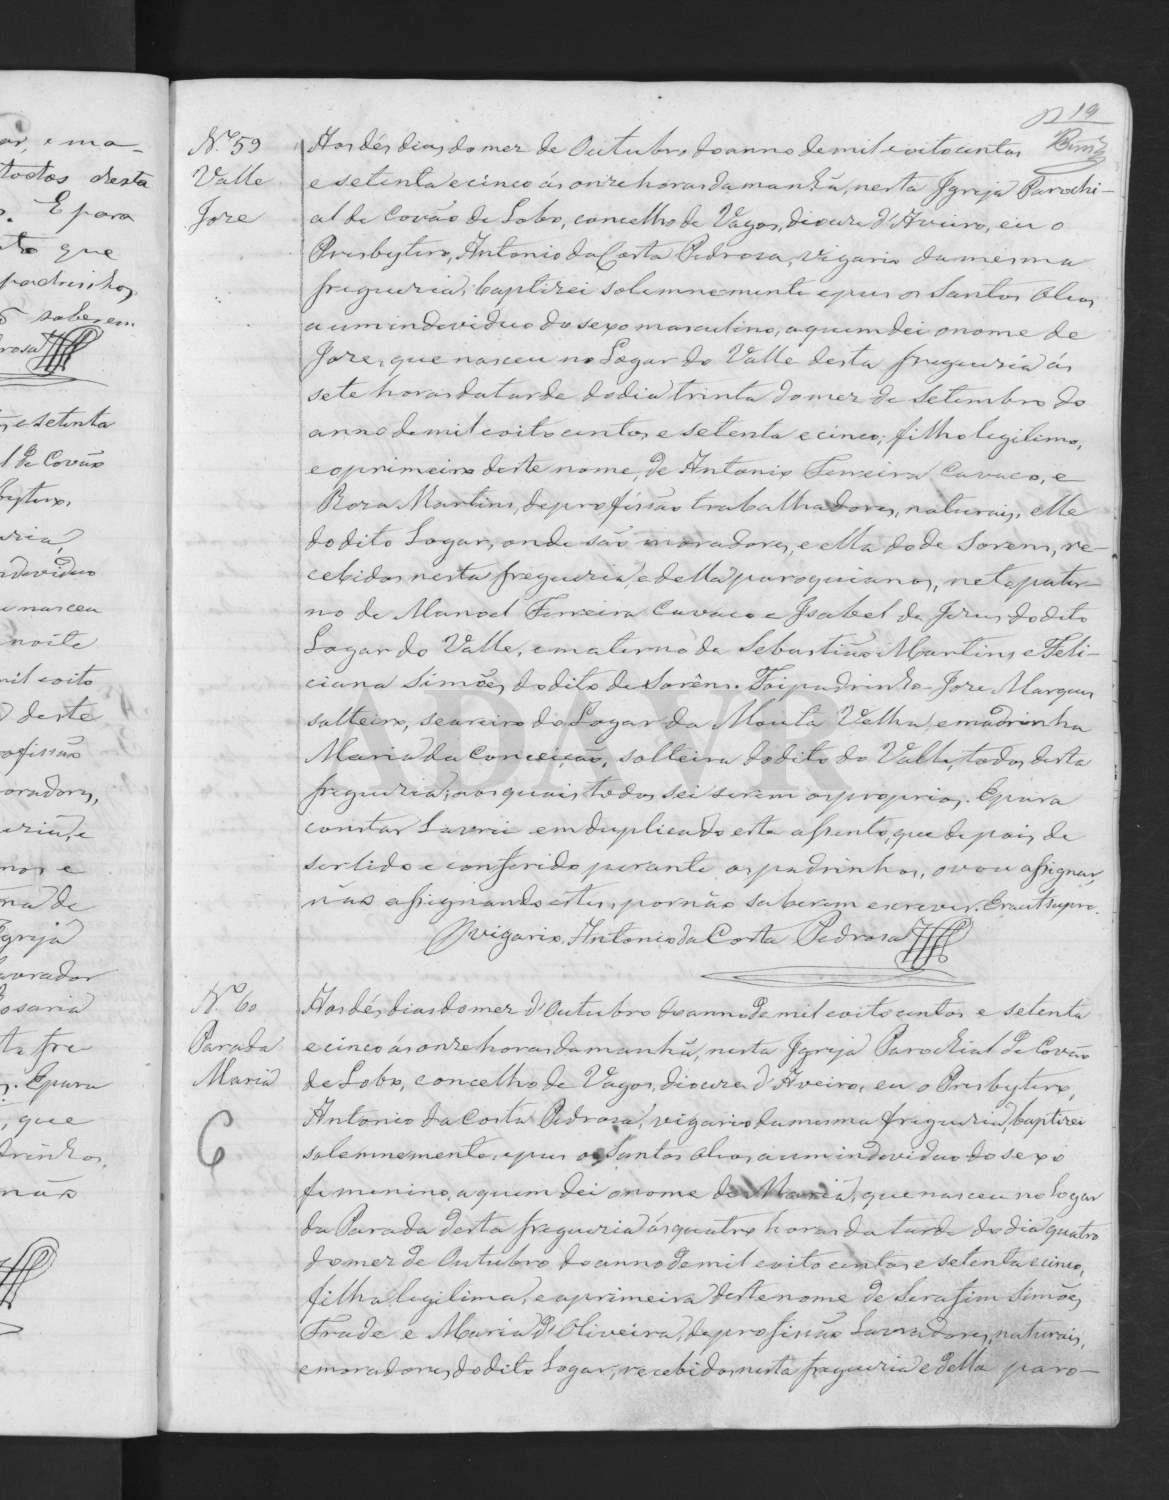 19
N.º 59
Valle
Joze
Aos dés dias do mez de Outubro do anno de mil e oito centos
e setenta e cinco ás onze horas da manhã, nesta Igreja Parochi-
al de Covão de Lobo, concelho de Vagos, dioceze d'Aveiro, eu o
Presbytero, Antonio da Costa Pedrosa, vigario da mesma
freguezia, baptizei solemnemente e pus os Santos Oleos
a um individuo do sexo masculino, a quem dei o nome de
Joze, que nasceu no Logar do Valle desta freguezia ás
sete horas da tarde do dia trinta do mez de Setembro do
anno de mil e oito centos e setenta e cinco; filho legitimo,
e o primeiro deste nome, de Antonio Ferreira Cavaco, e
Roza Martins, de profissão trabalhadores, naturais, elle
do dito Logar, onde são moradores, e ella do de Sorens, re-
cebidos nesta freguezia, e della paroquianos, neto pater-
no de Manoel Ferreira Cavaco e Isabel de Jesus do dito
Logar do Valle, e materno de Sebastião Martins e Feli-
ciana Simões do dito de Sorêns. Foi padrinho Joze Marques
solteiro, seareiro do Logar da Mouta Velha, e madrinha
Maria da Conceição, solteira do dito do Valle, todos desta
freguezia, aos quais todos sei serem os proprios. E para
constar Lavrei em duplicado este assento, que depois de
ser lido e conferido perante os padrinhos, o vou assignar,
não assignando estes, por não saberem escrever. Era ut supra.
O vigario, Antonio da Costa Pedrosa
N.º 60
Parada
Maria
Aos dés dias do mez d'Outubro do anno de mil e oito centos e setenta
e cinco ás onze horas da manhã, nesta Igreja Parochial de Covão
de Lobo, concelho de Vagos, dioceze d'Aveiro, eu o Presbytero,
Antonio da Costa Pedrosa, vigario da mesma freguezia, baptizei
solemnemente, e pus os Santos Oleos a um individuo do sexo
femenino, a quem dei o nome de Maria, que nasceu no Logar
da Parada desta freguezia ás quatro horas da tarde do dia quatro
do mez de Outubro do anno de mil e oito centos e setenta e cinco,
filha legitima, e a primeira deste nome de Serafim Simões
Frade e Maria d'Oliveira, de profissão Lavradores, naturais,
e moradores do dito Logar, recebidos nesta freguezia e della paro-
ADAVR